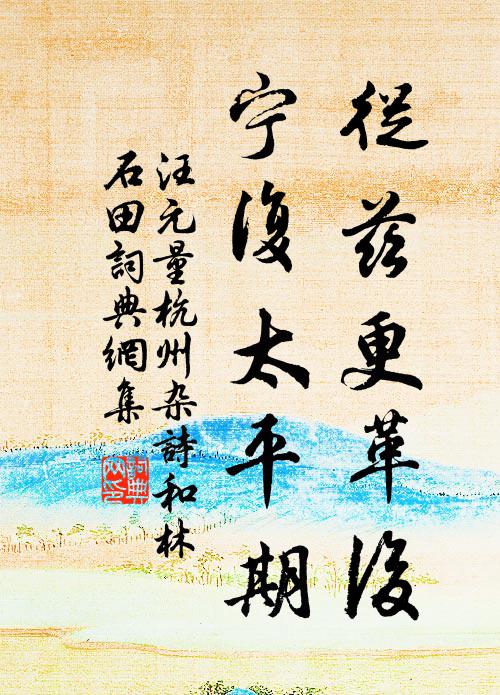 從茲更革後
宁復太平期
汪元量杭州杂詩和林
石田詞典網集